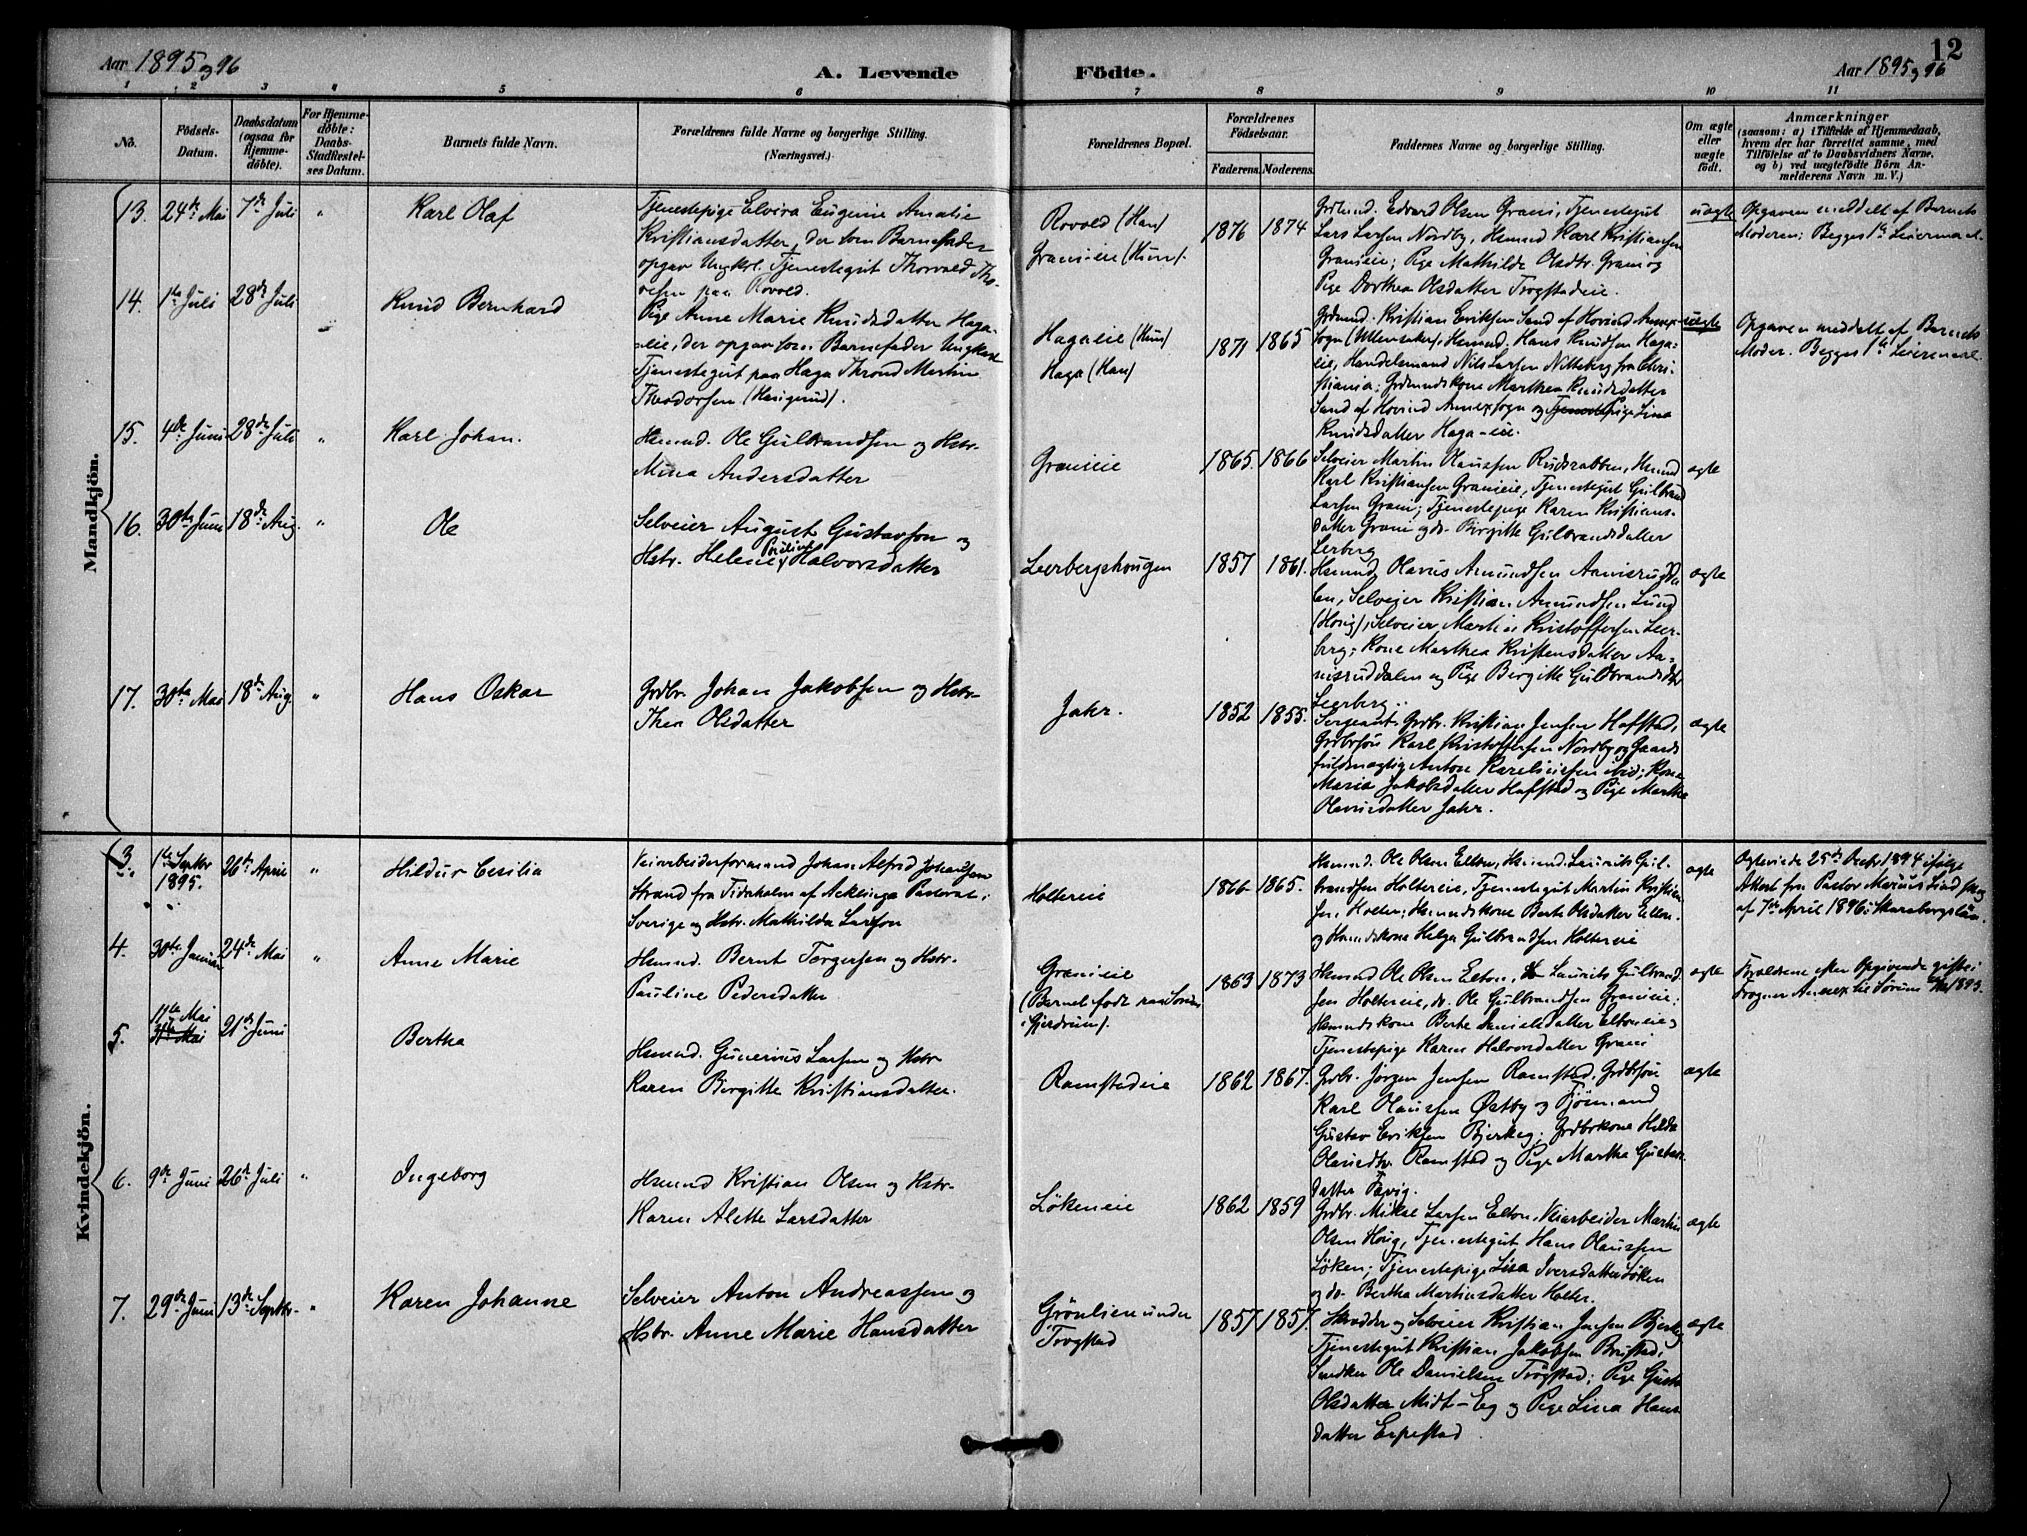 Aar 1895 og 96
A. Levende
Födte.
12
Aar 1895 og 96
1 2 3 4 5 6 7 8 9 10 11
No.
Födsels-
Datum.
Daabsdatum
(ogsaa for
Hjemme-
döbte).
For Hjemme-
döbte:
Daabs-
Stadfestel-
ses Datum.
Barnets fulde Navn.
Forældrenes fulde Navne og borgerlige Stilling.
(Næringsvei.)
Forældrenes Bopæl.
Forældrenes
Födselsaar.
Faderens. Moderens.
Faddernes Navne og borgerlige Stilling.
Om ægte
eller
uægte
födt.
Anmærkninger
(saasom: a) i Tilfælde af Hjemmedaab,
hvem der har forrettet samme, med
Tilföielse af to Daabsvidners Navne,
og b) ved uægtefödte Börn An-
melderens Navn m. V.)
Mandkjön.
13. 24de Mai 7de Juli " Karl Olaf
Tjenestepige Elvira Eugenie Amalie
Kristiansdatter, der som Barnefader
opgav Ungkl. Tjenestegut Thorvald Tho-
resen paa Rovold.
Rovold (Han)
Granieie (Hun).
1876 1874
Grdmd. Edvard Olsen Grani, Tjenestegut
Lars Larsen Nordby, Hsmnd Karl Kristiansen
Granieie; Pige Mathilde Olsdtr. Grani og
Pige Dorthea Olsdatter Trogstadeie.
uægte
Opgaven meddelt af Barnets
Moder: Begges 1ste Leiermaal.
14. 1ste Juli 28de Juli Knud Bernhard
Pige Anne Marie Knudsdatter Haga-
eie, der opgav som Barnefader Ungkarl
Tjenestegut paa Haga Thrond Martin
Theodorsen (Hasigerud).
Hagaeie (Hun)
Haga (Han)
1871 1865
Grdmnd. Kristian Eriksen Sand af Hovind Annex-
sogn (Ullensaker), Hsmnd. Hans Knudsen Haga-
eie, Handelsmand Nils Larsen Nitteberg fra Chri-
stiania; Grdmandskone Marthea Knudsdatter
Sand af Hovind Annexsogn og Pige Lina
Knudsdatter Haga-eie.
uægte
Opgaven meddelt af Barnets
Moder. Begges 1ste Leiermaal.
15. 4de Juni 28de Juli " Karl Johan.
Hsmnd. Ole Gulbrandsen og Hstr.
Mina Andersdatter
Granieie
1865. 1866
Selveier Martin Olaussen Rudsrabben, Hsmnd
Karl Kristiansen Granieie, Tjenestegut Gulbrand
Larsen Grani; Tjenestepige Karen Kristians-
datter Grani og do. Birgitte Gulbrandsdatter
Lerberg
ægte
16. 30te Juni 18de Aug. " Ole
Selveier August Gustavson og
Hstr. Helene Pauline Halvorsdatter
Leerbergshougen
1857 1861.
Hsmnd. Olavus Amundsen Aanisrudda-
len, Selveier Kristian Amundsen Lund
(Horig), Selveier Martin Kristoffersen Leer-
berg; Kone Marthea Kristensdatter Aa-
nisruddalen og Pige Birgitte Guldbrandsdtr.
Leerberg.
ægte
17. 30te Mai 18de Aug. " Hans Oskar
Grdbr. Johan Jakobsen og Hstr.
Thea Olsdatter
Jahr.
1852 1855.
Sergeant Grdbr. Kristian Jensen Hafstad,
Grdbrsøn Karl Kristoffersen Nordby og Gaards
fuldmægtig Anton Kareliussen ibid; Kone
Maria Jakobsdatter Hafstad og Pige Martha
Olavusdatter Jahr.
ægte
Kvindekjön.
3. 1ste Septbr 1895. 26de April " Hildur Cesilia
Veiarbeiderformand Johan Alfred Johanson
Strand fra Tidaholm af Acklinga Pastorat i
Sverige og Hstr. Mathilda Larsson
Holtereie
1866 1865.
Hsmnd. Ole Olsen Elton, Hsmnd. Laurits Gul-
brandsen Holtereie, Tjenestegut Martin Kristian-
sen Holter; Hsmndskone Berte Olsdatter Elton
og Hsmndskone Helga Gulbrandsen Holtereie
ægte
Ægteviede 25de Decbr 1894 ifølge
Attest fra Pastor Marcus Lind
af 7de April 1896, Skaraborgs län.
4. 30te Januar 24de Mai " Anne Marie
Hsmnd. Bernt Torgersen og Hstr.
Pauline Pedersdatter
Granieie
(Barnet født paa
i Gjerdrum).
1863 1873
Hsmnd Ole Olsen Elton, Laurits Gulbrand-
sen Holtereie, do. Ole Gulbrandsen Granieie;
Hsmndskone Berte Danielsdatter Eltoneie og
Tjenestepige Karen Halvorsdatter Grani
ægte
Forældrene efter Opgivende gifte i
Frogner Annex til Sørum 1893.
5. 11te Mai 21de Juni Bertha
Hsmnd. Gunerius Larsen og Hstr
Karen Birgitte Kristiansdatter.
Ramstadeie
1862 1867.
Grdbr. Jørgen Jensen Ramstad, Grdbrsøn
Karl Olaussen Østby og Sjømand
Gustav Eriksen Bjerkeg; Grdbrkone Hilda
Olausdtr. Ramstad og Pige Martha Gustav-
datter Favig.
ægte
6. 9de Juni 26de Juli " Ingeborg
Hsmnd Kristian Olsen og Hstr.
Karen Alette Larsdatter
Lökeneie
1862 1859
Grdbr. Mikal Larsen Elton, Veiarbeider Martin
Olsen Horig, Tjenestegut Hans Olaussen
Löken; Tjenestepige Lisa Iversdatter Löken
og do. Bertha Martinsdatter Holter.
ægte
7. 29de Juni 13de Septbr. " Karen Johanne
Selveier Anton Andreassen og
Hstr. Anne Marie Hansdatter
Grönlien under
Trogstad
1857 1857.
Skrædder og Selveier Kristian Jensen Bjerkeg
Tjenestegut Kristian Jakobsen Brustad,
Snedker Ole Danielsen Trögstad; Pige Gusta
Olsdatter Midt-Eg og Pige Lina Hans
datter Erpestad.
ægte